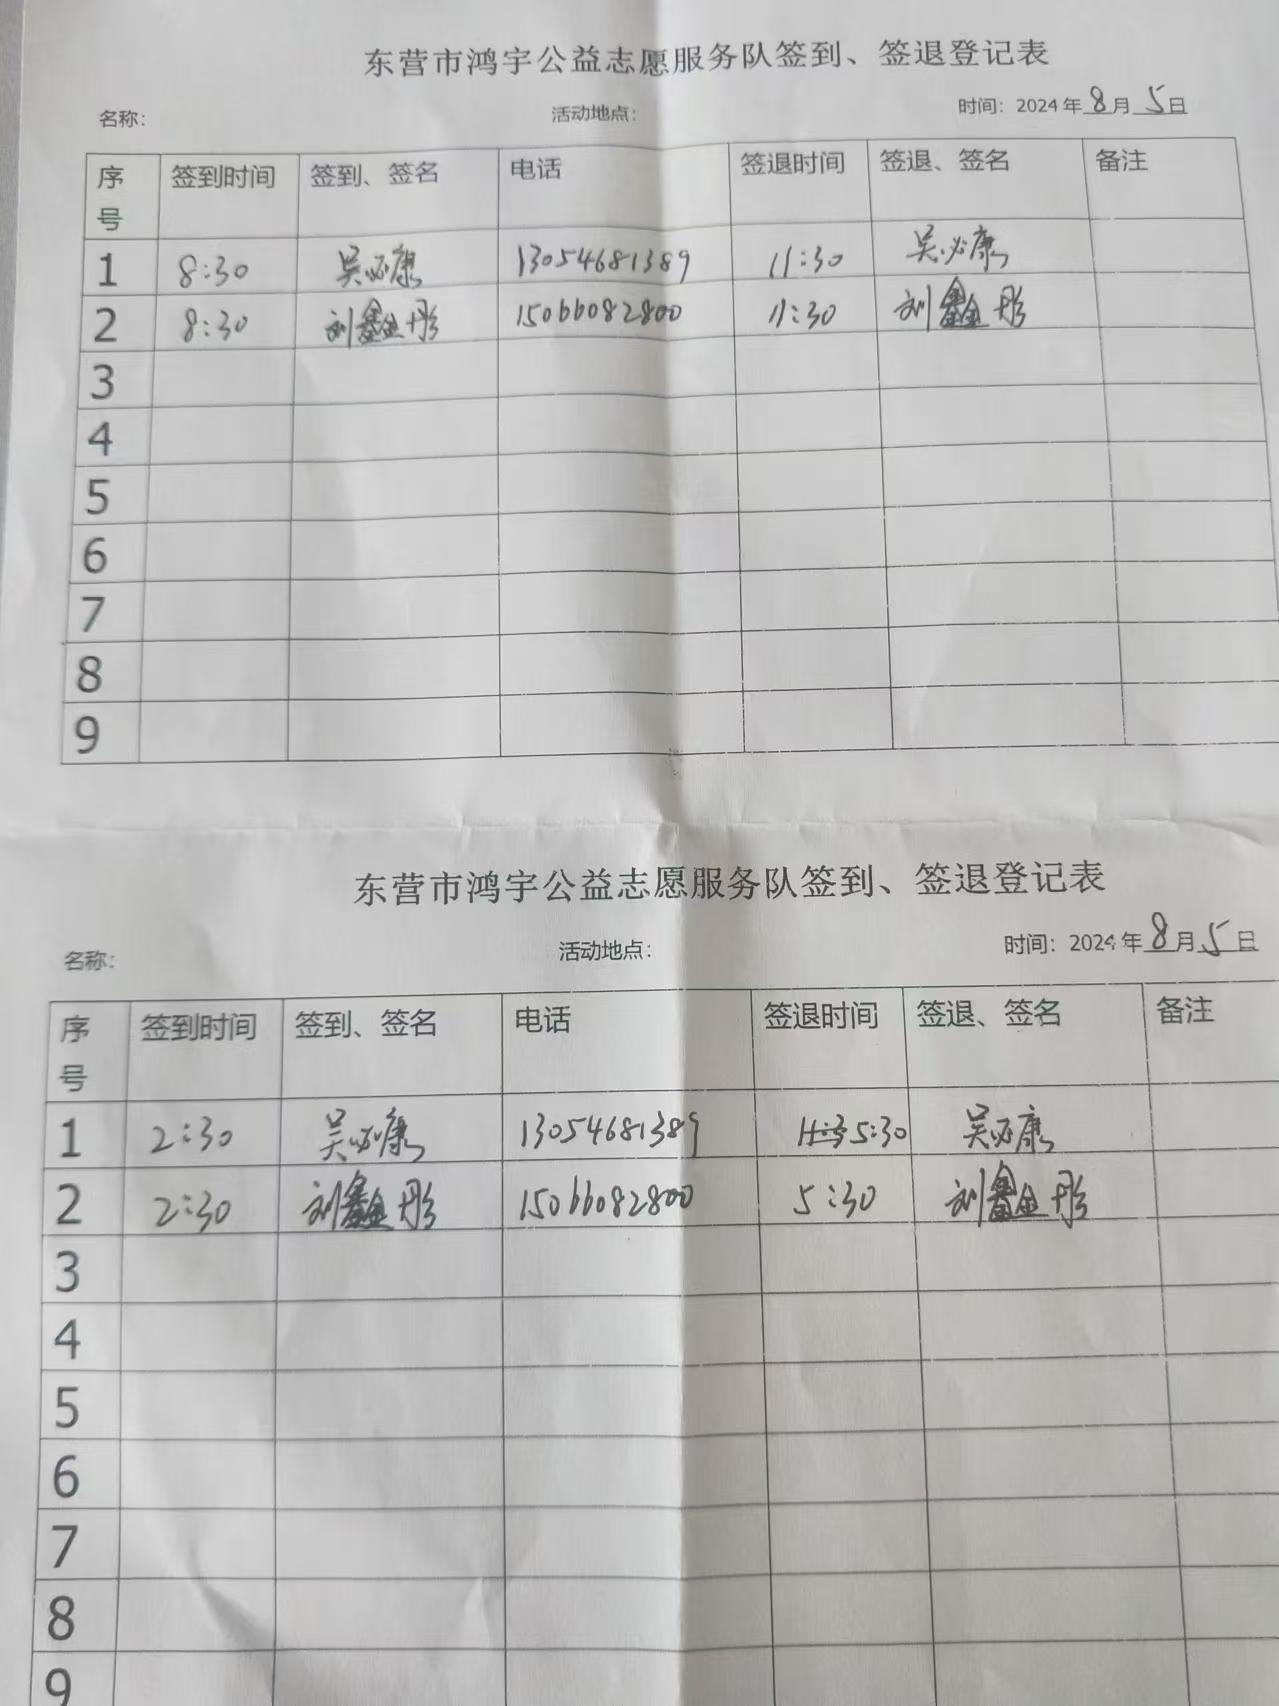 东营市鸿宇公益志愿服务队签到、签退登记表
名称： 活动地点： 时间：2024年8月5日
序号 签到时间 签到、签名 电话 签退时间 签退、签名 备注
1 8:30 吴必康 13054681389 11:30 吴必康
2 8:30 刘鑫彤 15066082800 11:30 刘鑫彤
3
4
5
6
7
8
9
东营市鸿宇公益志愿服务队签到、签退登记表
名称： 活动地点： 时间：2024年8月5日
序号 签到时间 签到、签名 电话 签退时间 签退、签名 备注
1 2:30 吴必康 13054681389 5:30 吴必康
2 2:30 刘鑫彤 15066082800 5:30 刘鑫彤
3
4
5
6
7
8
9